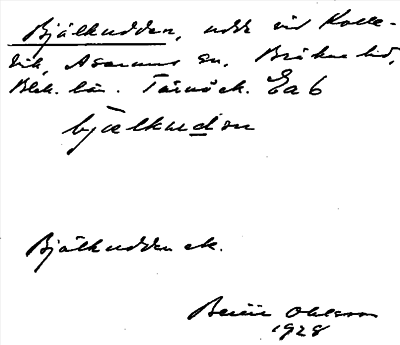 Bjälkudden, udde vid Kolle-
vik, Asarums sn. Bräkne hd,
Blek. län. Tärnö ek. Ea6
bjælkudən
Bjälkudden ek.
Ohlsson
1928